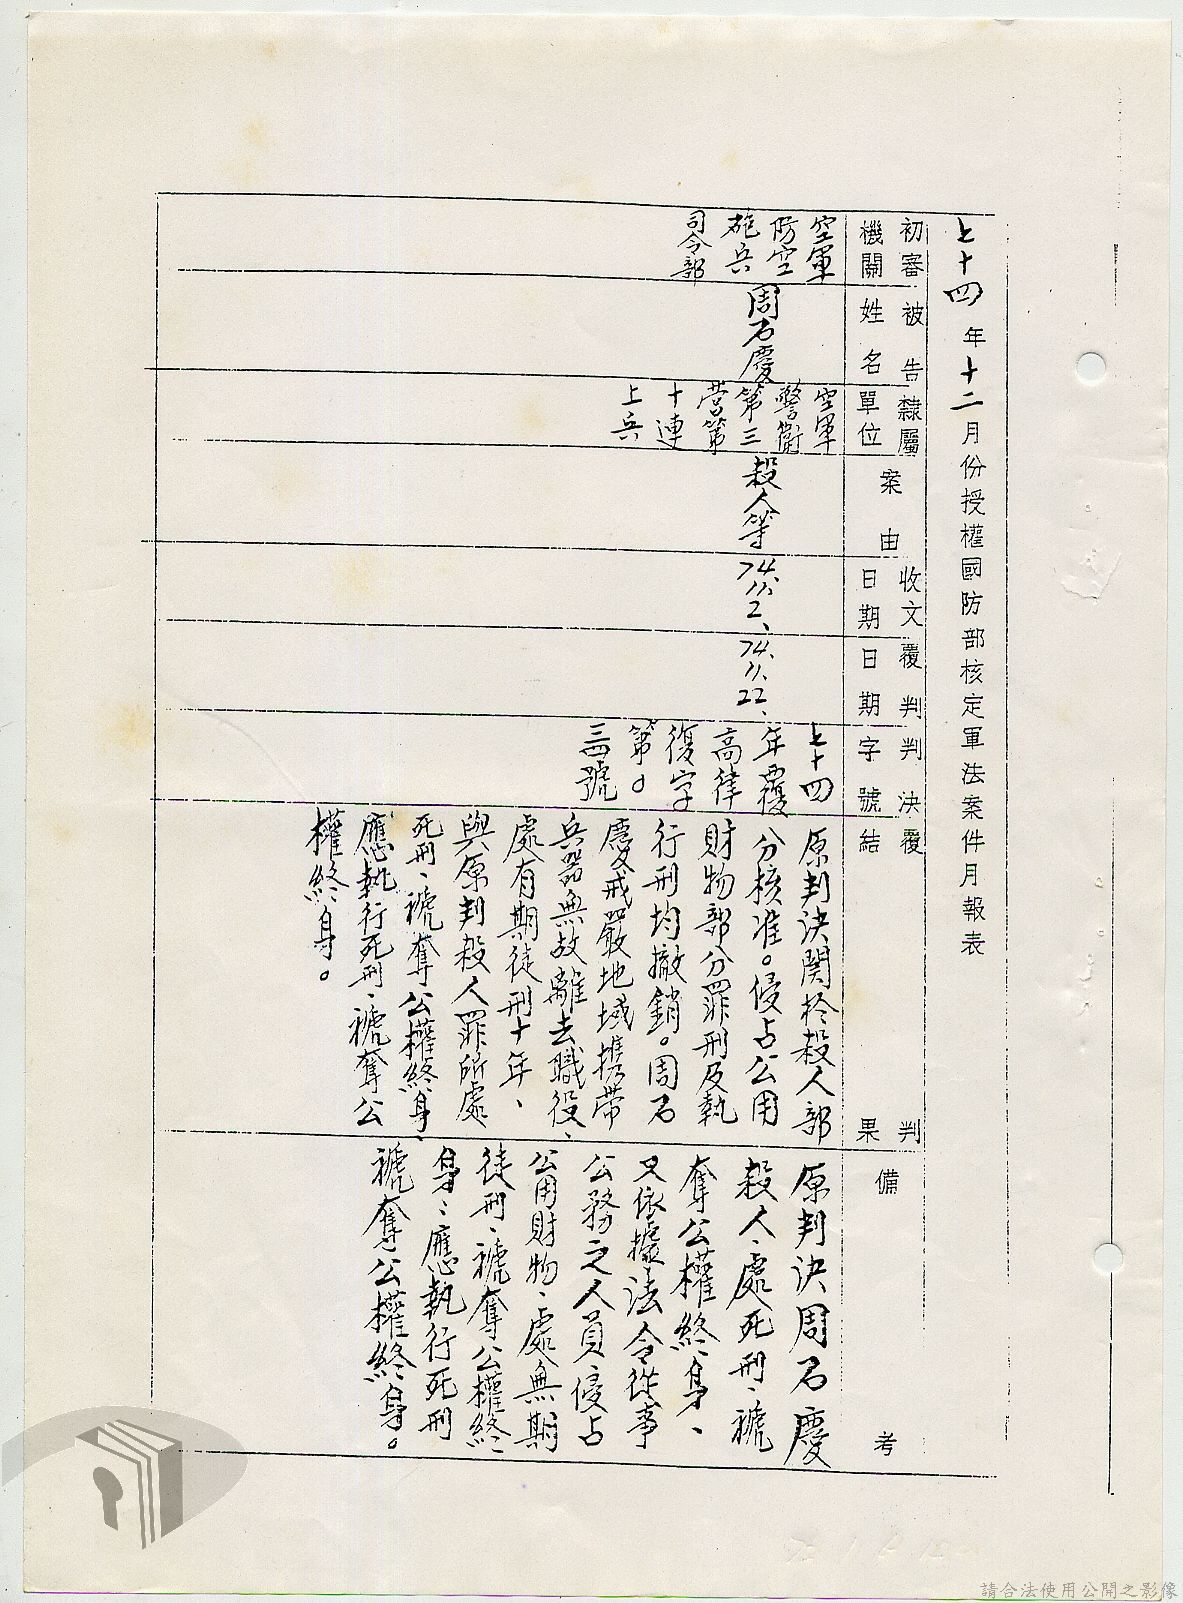 七十四年十二月份授權國防部核定軍法案件月報表
初審
機關
被告
姓名
隸屬
單位
案由
收文
日期
覆判
日期
判決
字號
覆判
結果
備考
空軍
防空
砲兵
司令部
周石慶
空軍
警衛
第三
營第
十連
上兵
殺人等
74、11、2、
74、11、22、
七十四
年覆
高律
復字
第0
三四號
原判決関於殺人部
分核准。侵占公用
財物部分罪刑及執
行刑均撤銷。周石
慶戒嚴地域携帶
兵器無故離去職役、
處有期徒刑十年、
與原判殺人罪所處
死刑、褫奪公權終身、
應執行死刑、褫奪公
權終身。
原判決周石慶
殺人、處死刑、褫
奪公權終身、
又依據法令從事
公務之人員侵占
公用財物、處無期
徒刑、褫奪公權終
身、應執行死刑
褫奪公權終身。
請合法使用公開之影像